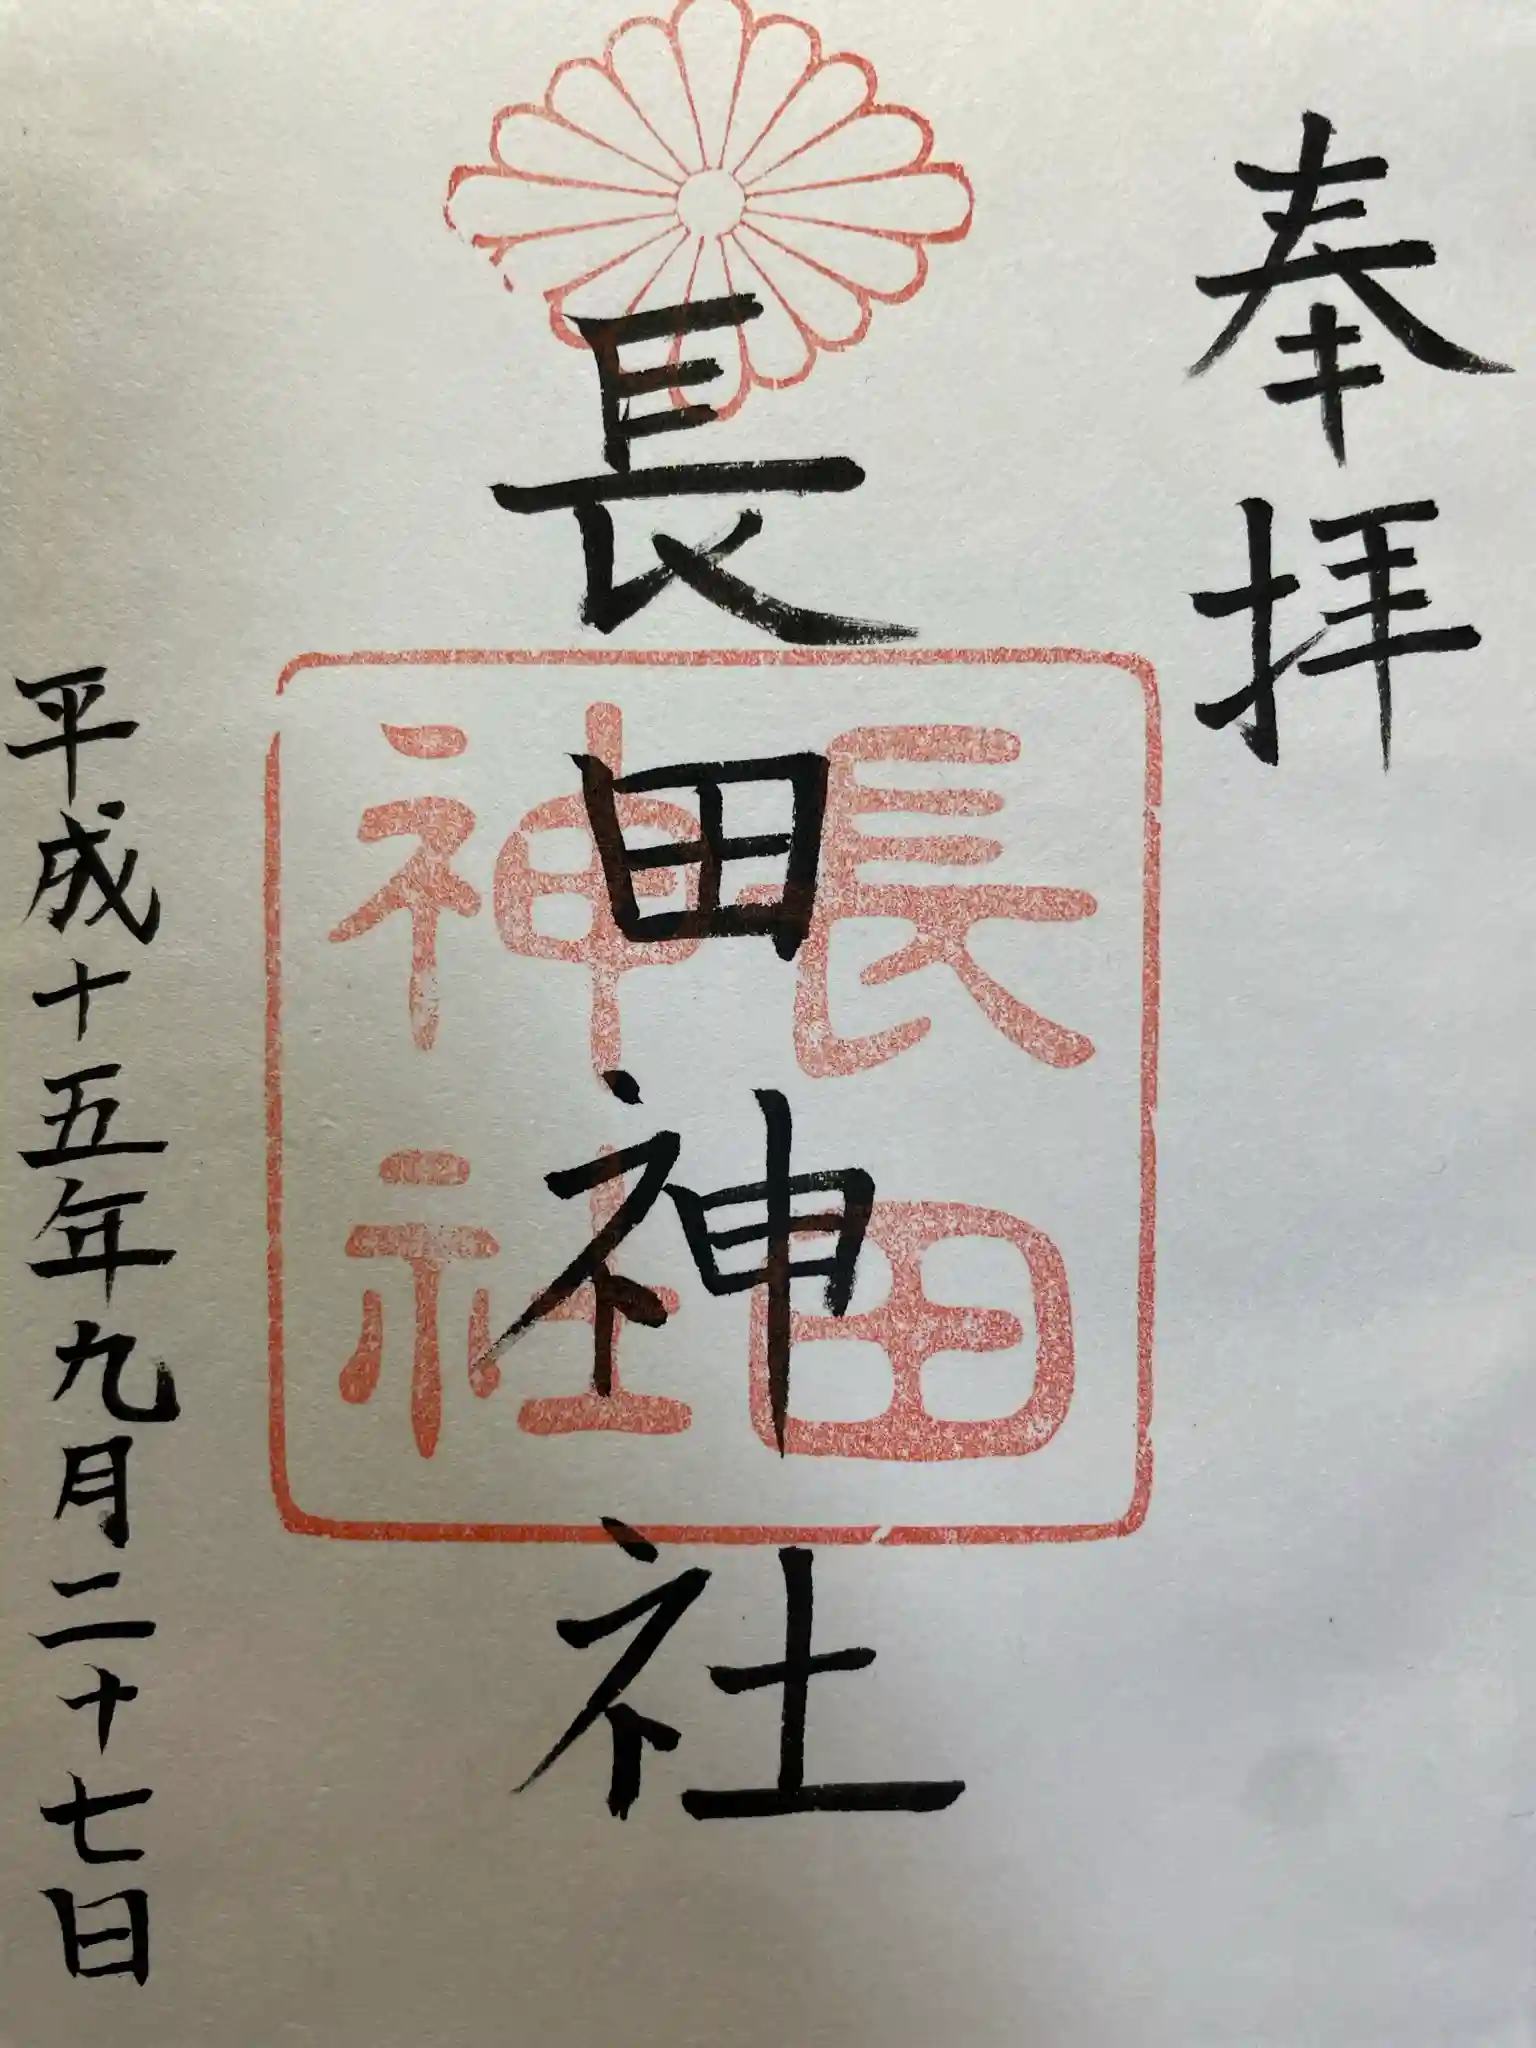 奉拝
長田神社
長田
神社
平成十五年九月二十七日